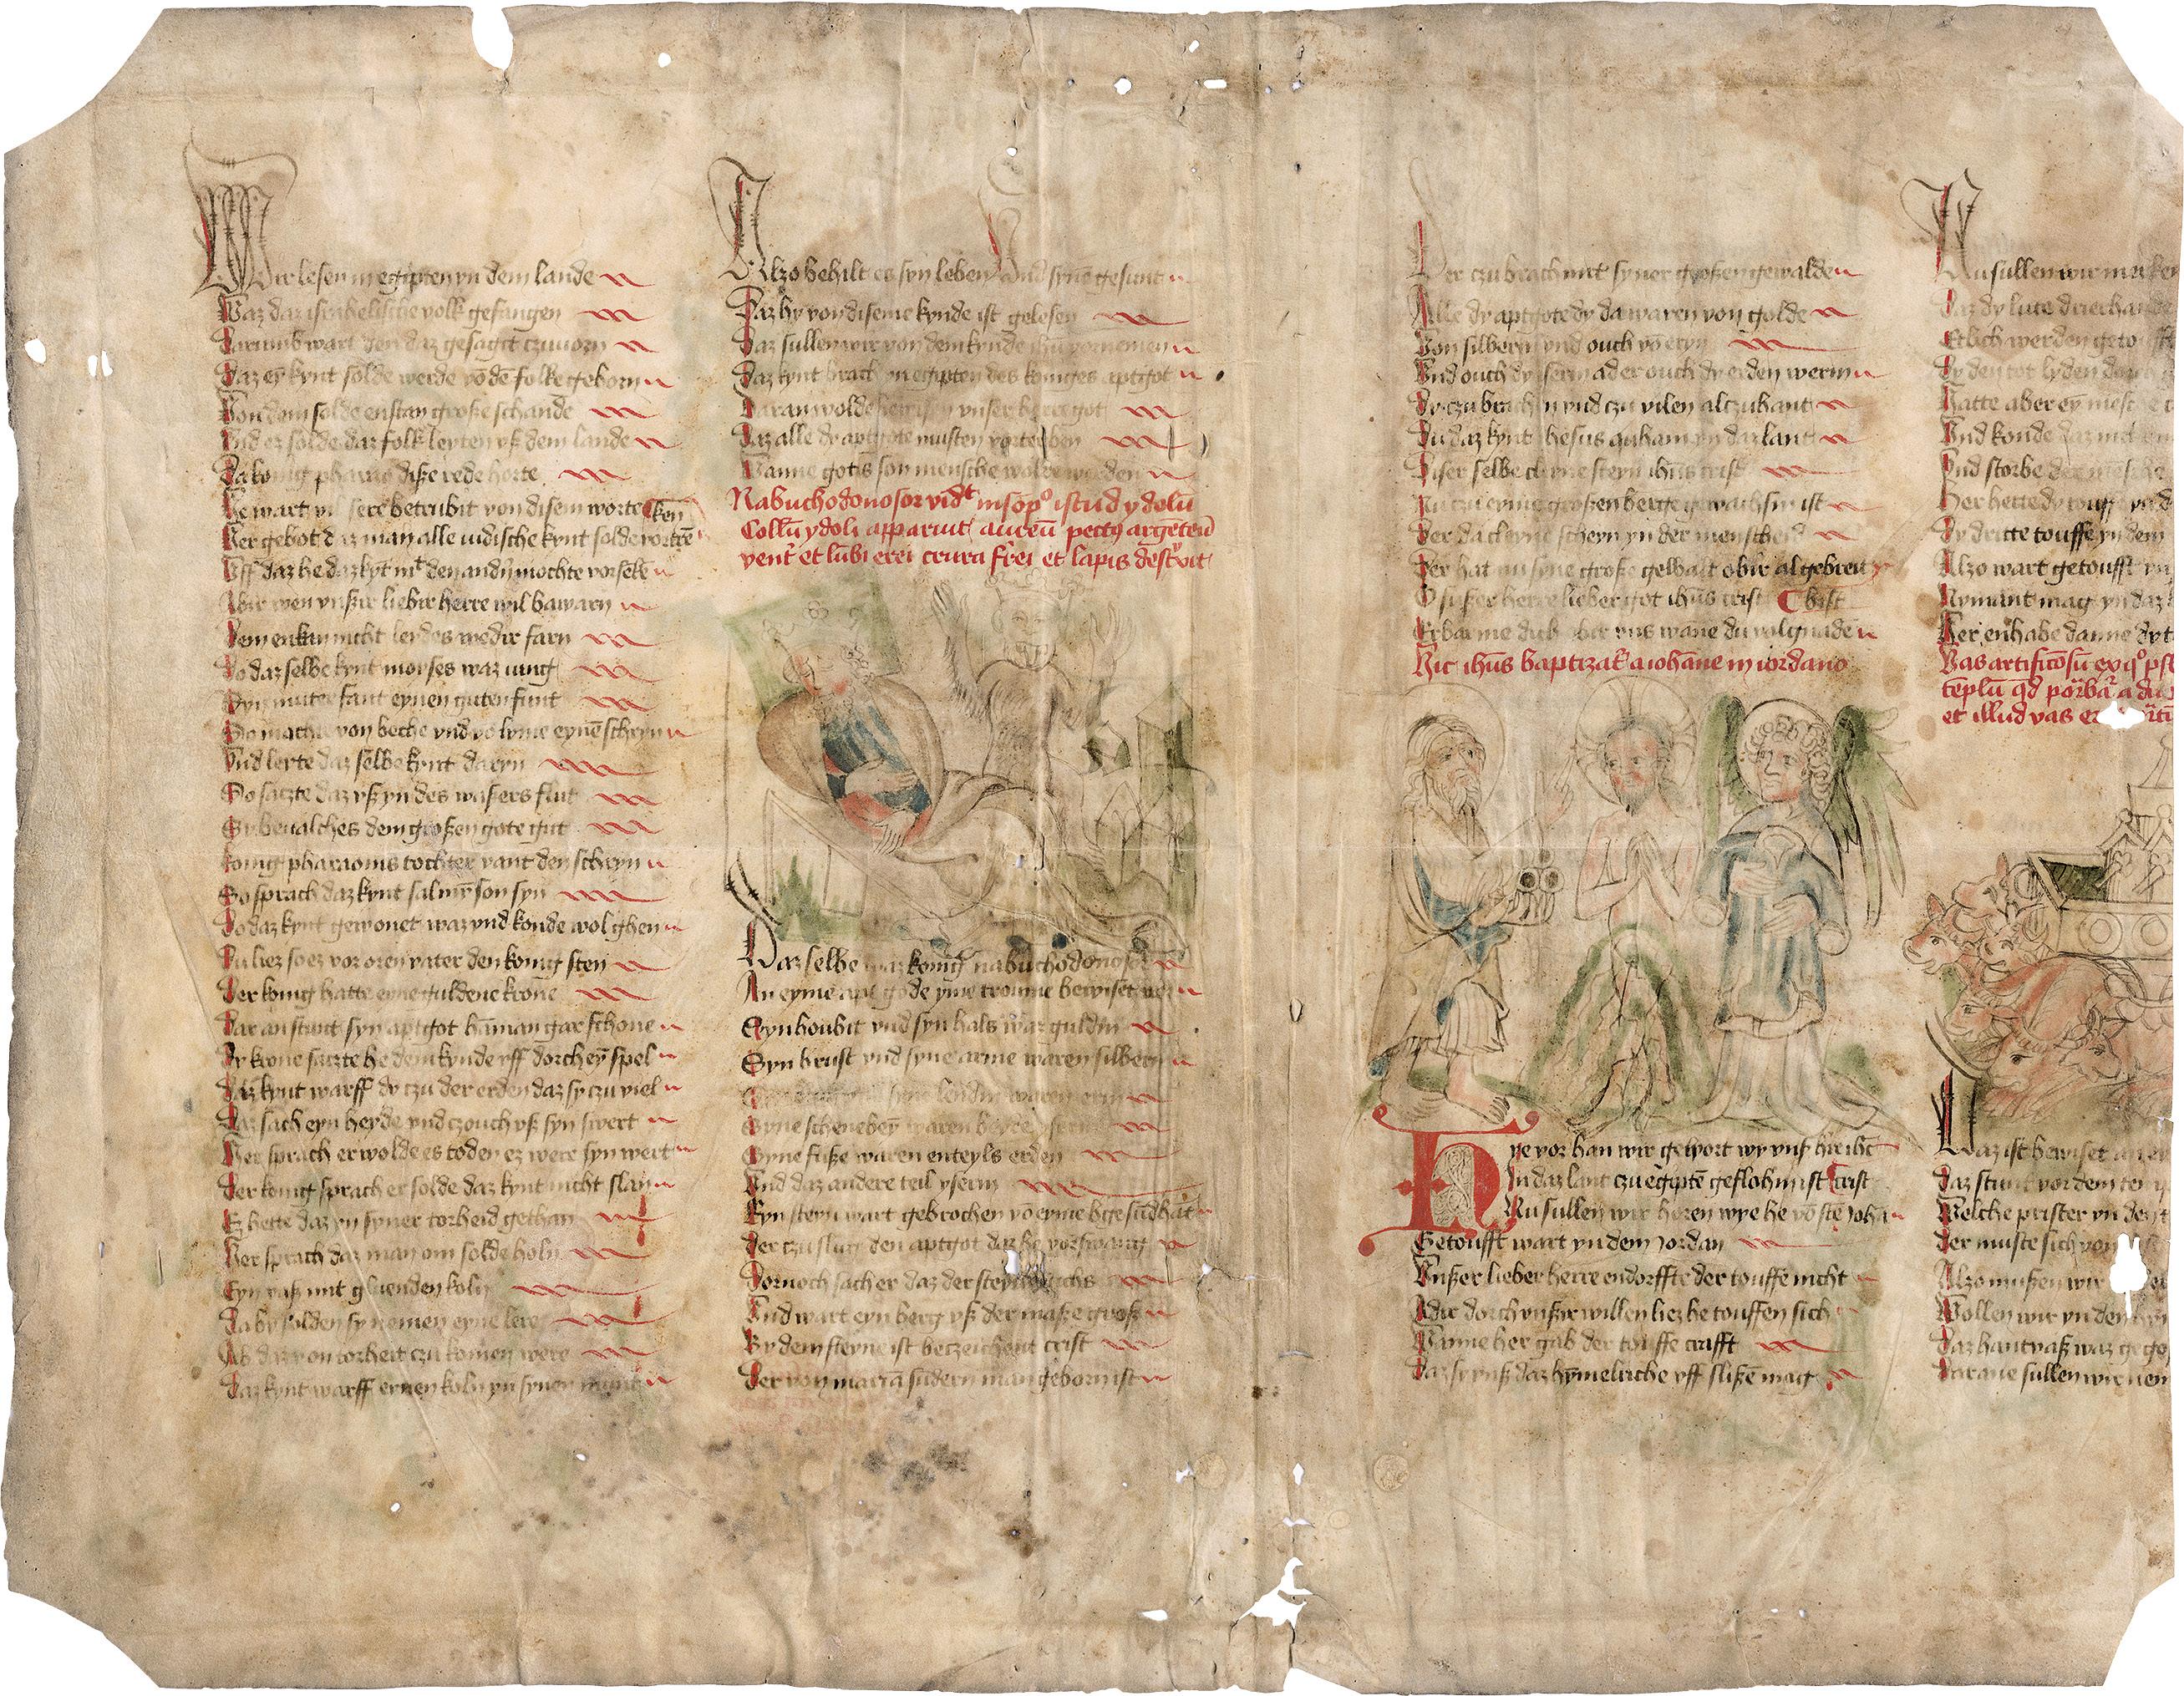 Wir lesen in egipten yn dem lande
Waz daz israhelische volk gefangen
Darumb wart den daz gesagit czuuorn
Daz eȳ kynt solde werdē vō dē folke geborn
Von dem solde enstan große schande
Vnd er solde daz folk leyten vß dem lande
Da konig pharao diße rede horte
He wart vil sere betrubit von disem worte
Her gebot daz man alle iudische kynt solde vortrē
ken
Vff daz he daz kȳt mit den andn̄ mochte vorselē
Abir wen vnßir liebir herre wil bawarn
Dem enkan nicht leydes wedir farn
Do daz selbe kynt moyses waz iung
Syn muter fant eynen guten funt
So machte von beche vnd vō lyme eynē schryn
Vnd lerte daz selbe kynt daryn
So saczte daz vß yn des waßers flut
Sy beualches dem großen gote gut
konig pharaonis tochter vant den schryn
So sprach daz kynt sal mȳ son syn
Do daz kynt gewonet waz vnd konde wol ghen
Du liez so ez vor oren vater den konig sten
Der konig hatte eyne guldene krone
Dar an stunt syn aptgot hāman gar schone
Dy krone saczte he dem kynde vff dorch eȳ spel
Daz kynt warff dy czu der erden daz sy czu viel
Daz sach eyn heyde vnd czouch vß syn swert
Her sprach er wolde es toden ez were syn wert
Der konig sprach er solde daz kynt nicht slan
Ez hette daz yn syner torheid gethan
Her sprach daz man om solde holn
Eyn vaß mit gluenden koln
Da by solden sy nemen eyne lere
Ab daz von torheit czu komen were
Daz kynt warff eynen koln yn synen munt
Alzo behilt es syn leben vnd synē gesunt
Waz hy von diseme kynde ist gelesen
Daz sullen wir von dem kynde ihū vornemen
Daz kynt brach yn egipten des koniges aptgot
Daran wolde bewisen vnser herre got
Daz alle dy aptgote musten vorterben
Wanne gotis son mensche wolde werden
Nabuchodonosor vidt in sōpo istud ydolū
Collū ydoli apparuit aureū pectꝰ argēteū
vent̄ et lūbi erei crura frei et lapis destxit
Daz selbe waz konig nabuchodonosor
An eyme apt gode yme troume bewiset vor
Syn houbit vnd syn hals war guldin
Syn brust vnd syne arme waren silbern
syne lendin waren erin
Syne schenebeȳ waren beyde yserin
Syne fuße waren enteyls erden
Vnd daz andere teil yserin
Eyn steyn wart gebrochen vō eyme bge sūd hāt
Der czu slug den aptgot daz he vorswant
Dornoch sach er daz der steyn wuchs
Vnd wart eyn berg vß der maße groß
By dem steyne ist beczeichent crist
Der von maria sūdern man geborn ist
Der czu brach mit syner großen gewalde
Alle dy aptgote dy da waren von golde
Von silbern vnd ouch vō eryn
Vnd ouch dy yserin ader ouch dy erden werin
Dy czu brachin vnd czu vilen alczu hant
Du daz kynt ihesus quham yn daz lant
Diser selbe cleyne steyn ihūs crist
Nu czu eyme großen berge gewachsin ist
Der da cleyne scheyn yn der menscheit
Der hat nu syne große gewalt obir al gebreit
O sußer herre lieber got ihūs crist
bist
Erbarme dich obir vns wane du vol gnadē
Hic ihūs baptizat̄ a iohāne in iordano
Hye vor han wir gehort wy vnß h̄re ihc̄
In daz lant czu egiptē geflohin ist crist
Nu sullen wir horen wye he vō stē johā
Getoufft wart yn dem Jordan
Vnßer lieber herre endorffte der touffe nicht
Adir dorch vnßir willen liez he touffen sich
Wanne her gab der touffe crafft
Daz sy vnß daz hȳmelriche vff slißē mag
Nu sullen wir merken
Daz dy lute drierhande
Etlich werden geto
Dy den tot lyden dorch
Hatte aber eȳ mesche
Vnd konde daz nicht
Vnd storbe der mesche
Her hette dy touffe
Dy dritte touffe yn dem
Alzo wart getoufft
Nymant mag yn daz
Her enhabe danne dy
Vas artificōsū ex qo
tēplū qd portbāt a du
et illud vas
Daz ist bewiset an
Daz stunt vor dem
Welche prister yn den
Der muste sich von
Alzo mußen wir
Wollen wir yn den
Daz hantvaß waz gego
Darane sullen wir